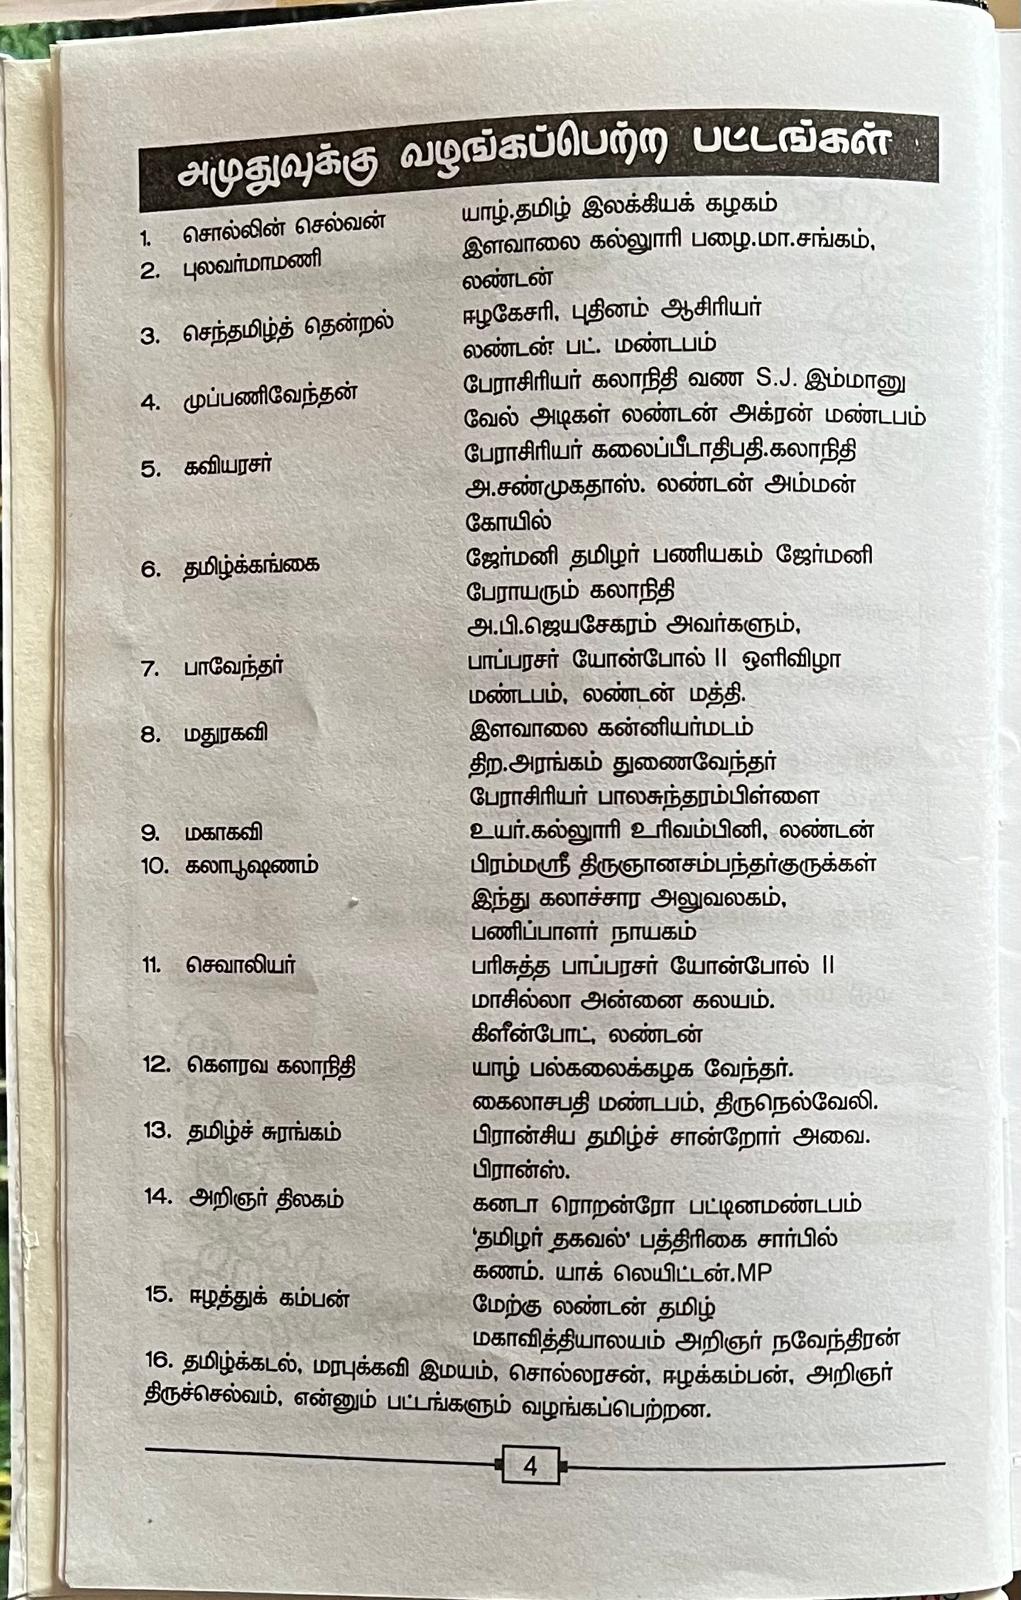 அமுதுவுக்கு வழங்கப்பெற்ற பட்டங்கள்
1. சொல்லின் செல்வன் யாழ்.தமிழ் இலக்கியக் கழகம்
2. புலவர்மாமணி இளவாலை கல்லூரி பழை.மா.சங்கம்,
லண்டன்
3. செந்தமிழ்த் தென்றல் ஈழகேசரி, புதினம் ஆசிரியர்
லண்டன் பட். மண்டபம்
4. முப்பணிவேந்தன் பேராசிரியர் கலாநிதி வண S.J. இம்மானு
வேல் அடிகள் லண்டன் அக்ரன் மண்டபம்
5. கவியரசர் பேராசிரியர் கலைப்பீடாதிபதி.கலாநிதி
அ.சண்முகதாஸ். லண்டன் அம்மன்
கோயில்
6. தமிழ்க்கங்கை ஜேர்மனி தமிழர் பணியகம் ஜேர்மனி
பேராயரும் கலாநிதி
அ.பி.ஜெயசேகரம் அவர்களும்,
7. பாவேந்தர் பாப்பரசர் யோன்போல் II ஒளிவிழா
மண்டபம், லண்டன் மத்தி.
8. மதுரகவி இளவாலை கன்னியர்மடம்
திற.அரங்கம் துணைவேந்தர்
பேராசிரியர் பாலசுந்தரம்பிள்ளை
9. மகாகவி உயர்.கல்லூரி உரிவம்பினி, லண்டன்
10. கலாபூஷணம் பிரம்மஸ்ரீ திருஞானசம்பந்தர்குருக்கள்
இந்து கலாச்சார அலுவலகம்,
பணிப்பாளர் நாயகம்
11. செவாலியர் பரிசுத்த பாப்பரசர் யோன்போல் II
மாசில்லா அன்னை கலயம்.
கிளீன்போட், லண்டன்
12. கௌரவ கலாநிதி யாழ் பல்கலைக்கழக வேந்தர்.
கைலாசபதி மண்டபம், திருநெல்வேலி.
13. தமிழ்ச் சுரங்கம் பிரான்சிய தமிழ்ச் சான்றோர் அவை.
பிரான்ஸ்.
14. அறிஞர் திலகம் கனடா ரொறன்ரோ பட்டினமண்டபம்
'தமிழர் தகவல்' பத்திரிகை சார்பில்
கணம். யாக் லெயிட்டன்.MP
15. ஈழத்துக் கம்பன் மேற்கு லண்டன் தமிழ்
மகாவித்தியாலயம் அறிஞர் நவேந்திரன்
16. தமிழ்க்கடல், மரபுக்கவி இமயம், சொல்லரசன், ஈழக்கம்பன், அறிஞர்
திருச்செல்வம், என்னும் பட்டங்களும் வழங்கப்பெற்றன.
4